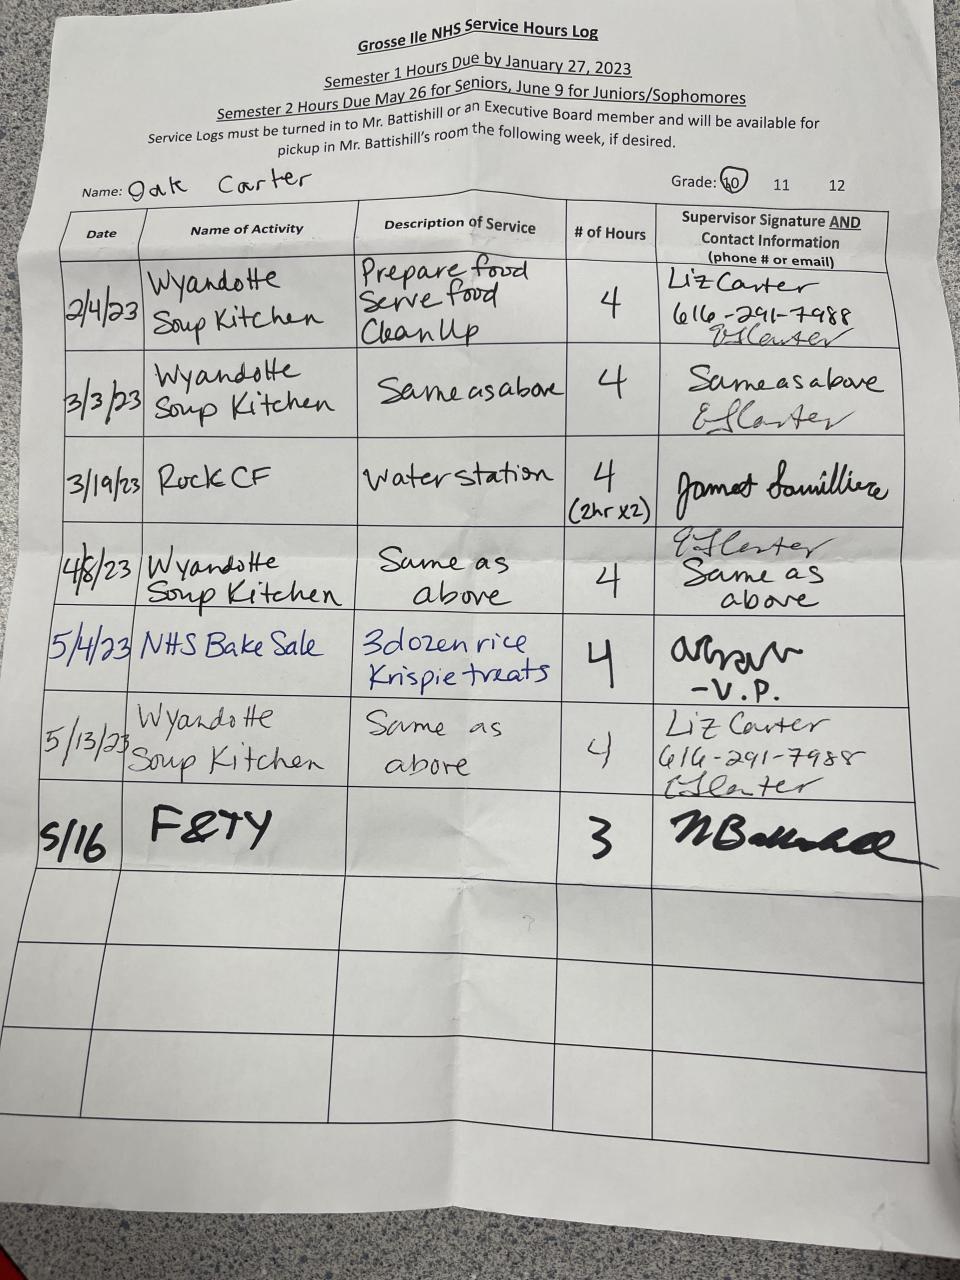 Grosse Ile NHS Service Hours Log
Semester 1 Hours Due by January 27, 2023
Semester 2 Hours Due May 26 for Seniors, June 9 for Juniors/Sophomores
Service Logs must be turned in to Mr. Battishill or an Executive Board member and will be available for
pickup in Mr. Battishill's room the following week, if desired.
Name: Carter
Grade: 10 11 12
Date
Name of Activity
Description of Service
# of Hours
Supervisor Signature AND
Contact Information
(phone # or email)
2/4/23
Wyandotte
Soup Kitchen
Prepare food
Serve food
Clean Up
4
Liz Carter
616-291-7988
EJCarter
3/3/23
Wyandotte
Soup Kitchen
Same as above
4
Same as above
EJCarter
3/19/23
Rock CF
Water station
4
(2hr x2)
4/8/23
Wyandotte
Soup Kitchen
Same as
above
4
EJCarter
Same as
above
5/4/23
NHS Bake Sale
3 dozen rice
Krispie treats
4
-V.P.
5/13/23
Wyandotte
Soup Kitchen
Same as
above
4
Liz Carter
616-291-7988
EJCarter
5/16
F&TY
3
NBattishill